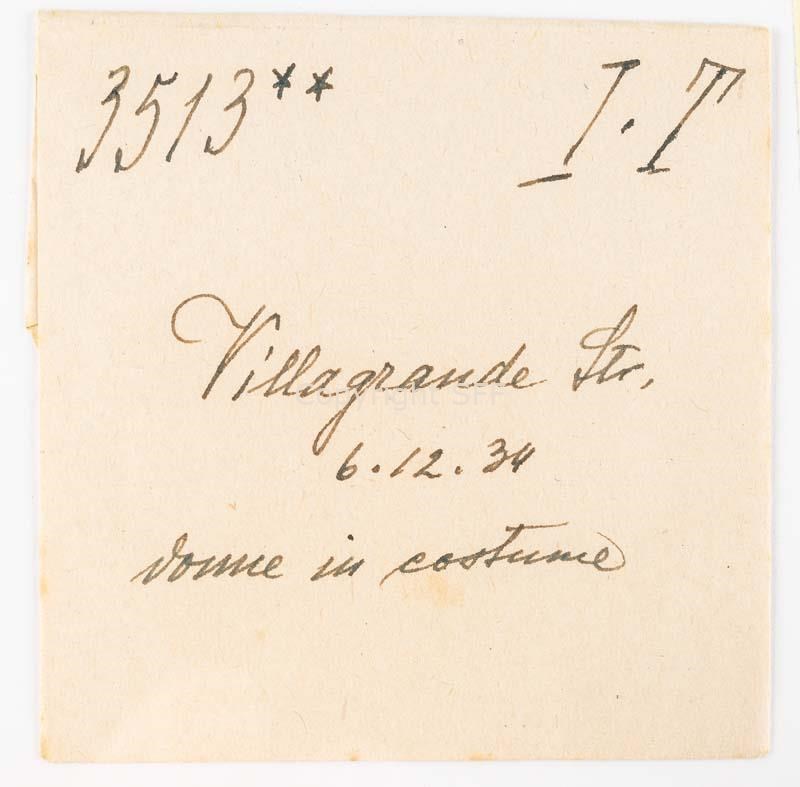 3513** I.T
Villagrande Str.
Copyright SFF
6.12.34
donne in costume